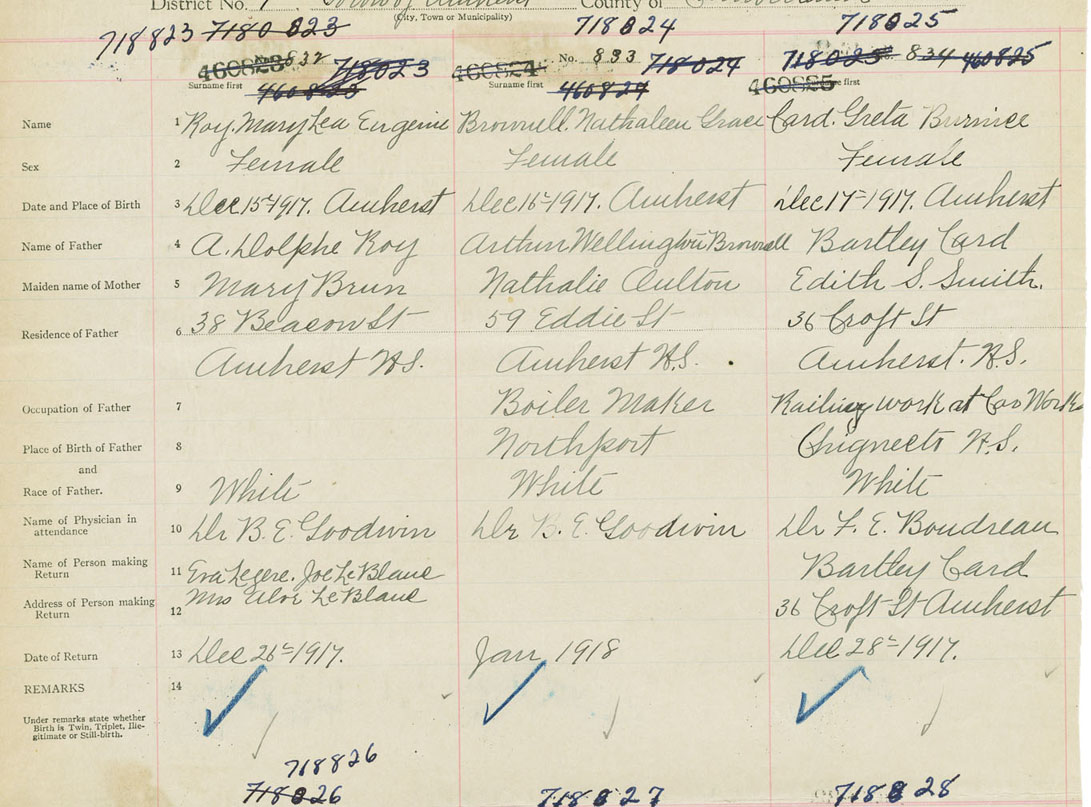 District No. 1 Town of Amherst County of Cumberland
(City, Town or Municipality)
718823 7180823 718824 718825
460823 832 718023 460824 No. 833 718024 718025 834 460825
Surname first 460823 Surname first 460824 460825 me first
Name 1 Roy. Mary Lea Eugenie Brownell. Nathaleen Grace Card. Greta Burnice
Sex 2 Female Female Female
Date and Place of Birth 3 Dec 15th 1917. Amherst Dec 16th 1917. Amherst Dec 17th 1917. Amherst
Name of Father 4 A. Dolphe Roy Arthur Wellington Brownell Bartley Card
Maiden name of Mother 5 Mary Brun Nathalie Oulton Edith S. Smith.
Residence of Father 6 38 Beacon St 59 Eddie St 36 Croft St
Amherst N.S. Amherst N.S. Amherst. N.S.
Occupation of Father 7 Boiler Maker work at Car Works
Place of Birth of Father 8 Northport Chignecto N.S.
and
Race of Father. 9 White White White
Name of Physician in
attendance 10 Dr B. E. Goodwin Dr B. E. Goodwin Dr F. E. Boudreau
Name of Person making
Return 11 Eva Legere. Joe LeBlanc Bartley Card
Address of Person making
Return 12 Mrs LeBlanc 36 Croft St Amherst
Date of Return 13 Dec 26th 1917. Jan 1918 Dec 28th 1917.
REMARKS 14
Under remarks state whether
Birth is Twin, Triplet, Ille-
gitimate or Still-birth.
718826
718826 718827 718828